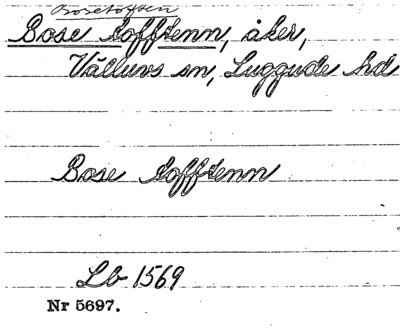 Bosetoften
Bose tofftenn, åker,
Välluvs sn, Luggude hd
Bose tofftenn
Lb 1569
Nr 5697.